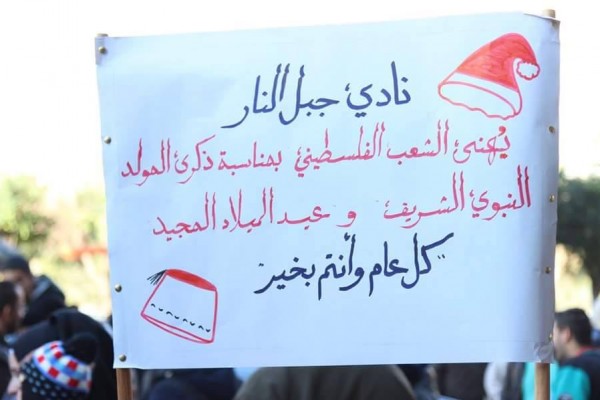 نادي جبل النار
يُهنئ الشعب الفلسطيني بمناسبة ذكرى المولد
النبوي الشريف و عيد الميلاد المجيد
"كل عام وأنتم بخير"